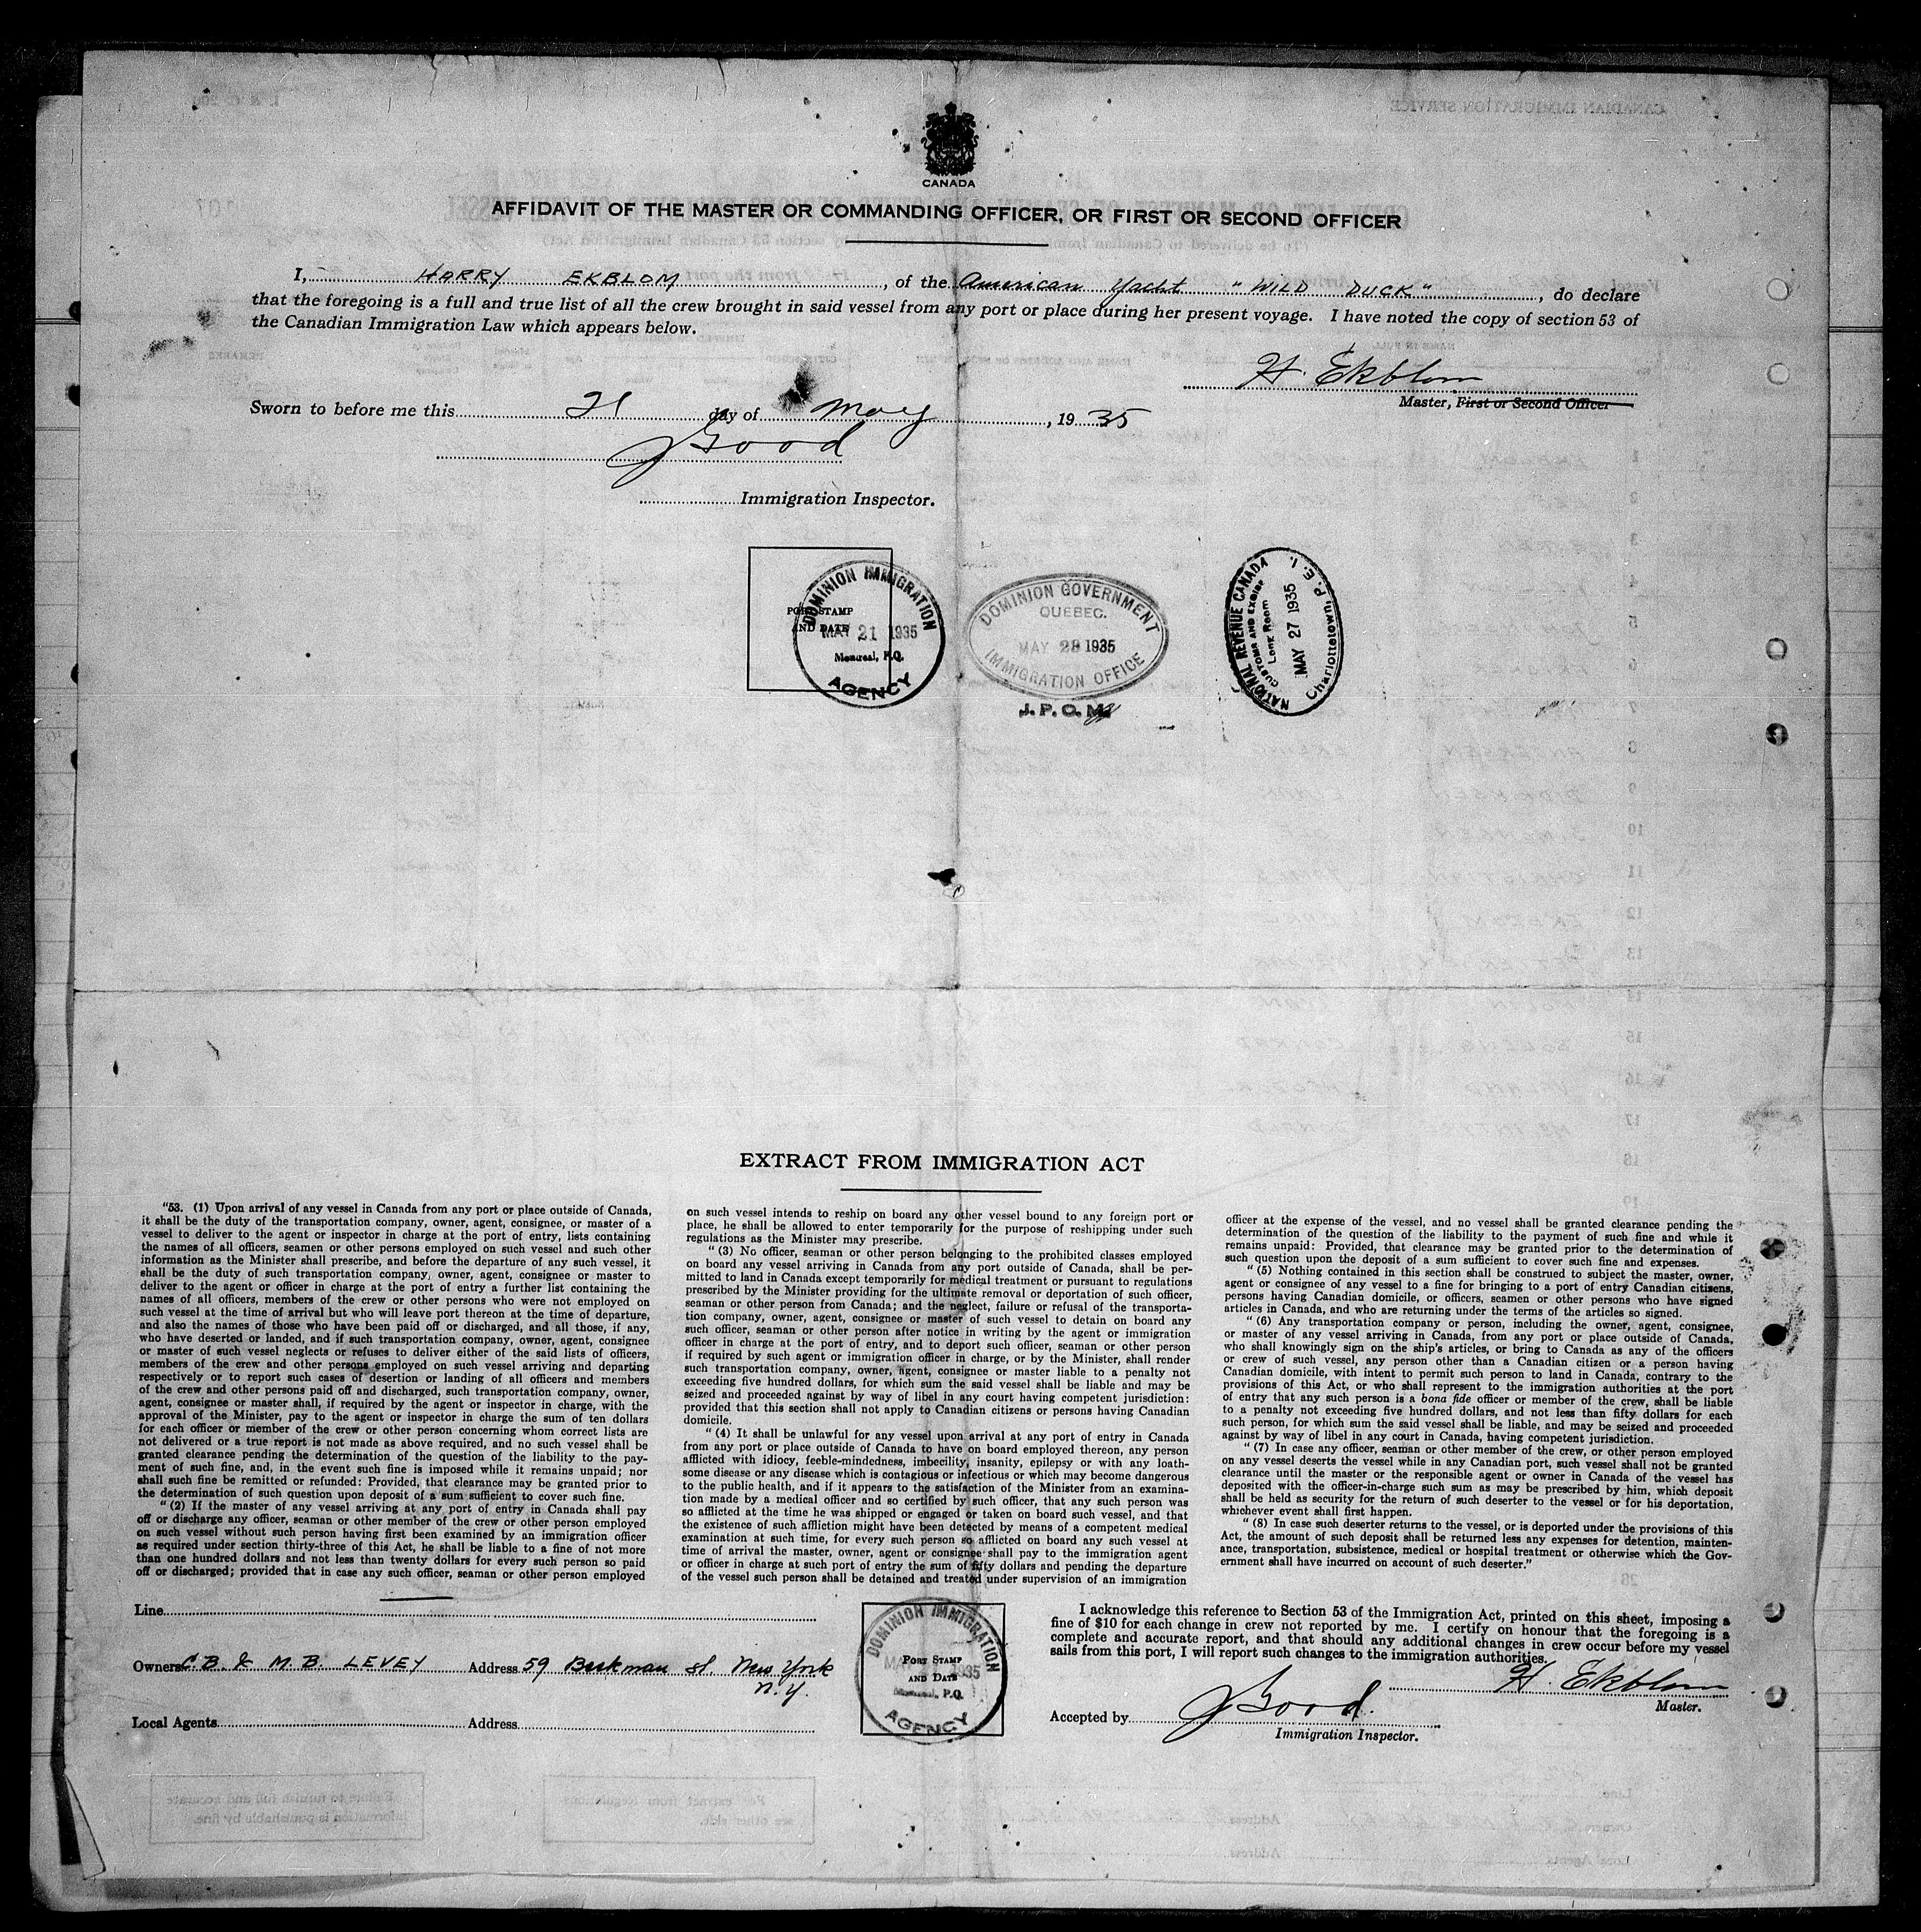 CANADA
AFFIDAVIT OF THE MASTER OR COMMANDING OFFICER, OR FIRST OR SECOND OFFICER
I, HARRY EKBLOM, of the American Yacht "WILD DUCK", do declare
that the foregoing is a full and true list of all the crew brought in said vessel from any port or place during her present voyage. I have noted the copy of section 53 of
the Canadian Immigration Law which appears below.
H. Ekblom
Master, First or Second Officer
Sworn to before me this 21 day of May, 1935
JGood
Immigration Inspector.
PORT STAMP
AND DATE
DOMINION IMMIGRATION
MAY 21 1935
Montreal, P.Q.
AGENCY
DOMINION GOVERNMENT
QUEBEC.
MAY 28 1935
IMMIGRATION OFFICE
J. P. O. M.
NATIONAL REVENUE CANADA
CUSTOMS AND EXCISE
Long Room
MAY 27 1935
Charlottetown, P. E. I.
EXTRACT FROM IMMIGRATION ACT
"53. (1) Upon arrival of any vessel in Canada from any port or place outside of Canada,
it shall be the duty of the transportation company, owner, agent, consignee, or master of a
vessel to deliver to the agent or inspector in charge at the port of entry, lists containing
the names of all officers, seamen or other persons employed on such vessel and such other
information as the Minister shall prescribe, and before the departure of any such vessel, it
shall be the duty of such transportation company, owner, agent, consignee or master to
deliver to the agent or officer in charge at the port of entry a further list containing the
names of all officers, members of the crew or other persons who were not employed on
such vessel at the time of arrival but who will leave port thereon at the time of departure,
and also the names of those who have been paid off or discharged, and all those, if any,
who have deserted or landed, and if such transportation company, owner, agent, consignee
or master of such vessel neglects or refuses to deliver either of the said lists of officers,
members of the crew and other persons employed on such vessel arriving and departing
respectively or to report such cases of desertion or landing of all officers and members
of the crew and other persons paid off and discharged, such transportation company, owner,
agent, consignee or master shall, if required by the agent or inspector in charge, with the
approval of the Minister, pay to the agent or inspector in charge the sum of ten dollars
for each officer or member of the crew or other person concerning whom correct lists are
not delivered or a true report is not made as above required, and no such vessel shall be
granted clearance pending the determination of the question of the liability to the pay-
ment of such fine, and, in the event such fine is imposed while it remains unpaid; nor
shall such fine be remitted or refunded: Provided, that clearance may be granted prior to
the determination of such question upon deposit of a sum sufficient to cover such fine.
"(2) If the master of any vessel arriving at any port of entry in Canada shall pay
off or discharge any officer, seaman or other member of the crew or other person employed
on such vessel without such person having first been examined by an immigration officer
as required under section thirty-three of this Act, he shall be liable to a fine of not more
than one hundred dollars and not less than twenty dollars for every such person so paid
off or discharged; provided that in case any such officer, seaman or other person employed
on such vessel intends to reship on board any other vessel bound to any foreign port or
place, he shall be allowed to enter temporarily for the purpose of reshipping under such
regulations as the Minister may prescribe.
"(3) No officer, seaman or other person belonging to the prohibited classes employed
on board any vessel arriving in Canada from any port outside of Canada, shall be per-
mitted to land in Canada except temporarily for medical treatment or pursuant to regulations
prescribed by the Minister providing for the ultimate removal or deportation of such officer,
seaman or other person from Canada; and the neglect, failure or refusal of the transporta-
tion company, owner, agent, consignee or master of such vessel to detain on board any
such officer, seaman or other person after notice in writing by the agent or immigration
officer in charge at the port of entry, and to deport such officer, seaman or other person
if required by such agent or immigration officer in charge, or by the Minister, shall render
such transportation company, owner, agent, consignee or master liable to a penalty not
exceeding five hundred dollars, for which sum the said vessel shall be liable and may be
seized and proceeded against by way of libel in any court having competent jurisdiction:
provided that this section shall not apply to Canadian citizens or persons having Canadian
domicile.
"(4) It shall be unlawful for any vessel upon arrival at any port of entry in Canada
from any port or place outside of Canada to have on board employed thereon, any person
afflicted with idiocy, feeble-mindedness, imbecility, insanity, epilepsy or with any loath-
some disease or any disease which is contagious or infectious or which may become dangerous
to the public health, and if it appears to the satisfaction of the Minister from an examina-
tion made by a medical officer and so certified by such officer, that any such person was
so afflicted at the time he was shipped or engaged or taken on board such vessel, and that
the existence of such affliction might have been detected by means of a competent medical
examination at such time, for every such person so afflicted on board any such vessel at
time of arrival the master, owner, agent or consignee shall pay to the immigration agent
or officer in charge at such port of entry the sum of fifty dollars and pending the departure
of the vessel such person shall be detained and treated under supervision of an immigration
officer at the expense of the vessel, and no vessel shall be granted clearance pending the
determination of the question of the liability to the payment of such fine and while it
remains unpaid: Provided, that clearance may be granted prior to the determination of
such question upon the deposit of a sum sufficient to cover such fine and expenses.
"(5) Nothing contained in this section shall be construed to subject the master, owner,
agent or consignee of any vessel to a fine for bringing to a port of entry Canadian citizens,
persons having Canadian domicile, or officers, seamen or other persons who have signed
articles in Canada, and who are returning under the terms of the articles so signed.
"(6) Any transportation company or person, including the owner, agent, consignee,
or master of any vessel arriving in Canada, from any port or place outside of Canada,
who shall knowingly sign on the ship's articles, or bring to Canada as any of the officers
or crew of such vessel, any person other than a Canadian citizen or a person having
Canadian domicile, with intent to permit such person to land in Canada, contrary to the
provisions of this Act, or who shall represent to the immigration authorities at the port
of entry that any such person is a bona fide officer or member of the crew, shall be liable
to a penalty not exceeding five hundred dollars, and not less than fifty dollars for each
such person, for which sum the said vessel shall be liable, and may be seized and proceeded
against by way of libel in any court in Canada, having competent jurisdiction.
"(7) In case any officer, seaman or other member of the crew, or other person employed
on any vessel deserts the vessel while in any Canadian port, such vessel shall not be granted
clearance until the master or the responsible agent or owner in Canada of the vessel has
deposited with the officer-in-charge such sum as may be prescribed by him, which deposit
shall be held as security for the return of such deserter to the vessel or for his deportation,
whichever event shall first happen.
"(8) In case such deserter returns to the vessel, or is deported under the provisions of this
Act, the amount of such deposit shall be returned less any expenses for detention, mainten-
ance, transportation, subsistence, medical or hospital treatment or otherwise which the Gov-
ernment shall have incurred on account of such deserter."
Line
Owners C.B. & M.B. LEVEY Address 59 Beekman St. New York
N.Y.
Local Agents Address
DOMINION IMMIGRATION
PORT STAMP
AND DATE
1935
Montreal, P.Q.
AGENCY
I acknowledge this reference to Section 53 of the Immigration Act, printed on this sheet, imposing a
fine of $10 for each change in crew not reported by me. I certify on honour that the foregoing is a
complete and accurate report, and that should any additional changes in crew occur before my vessel
sails from this port, I will report such changes to the immigration authorities.
H. Ekblom
Master.
Accepted by JGood.
Immigration Inspector.